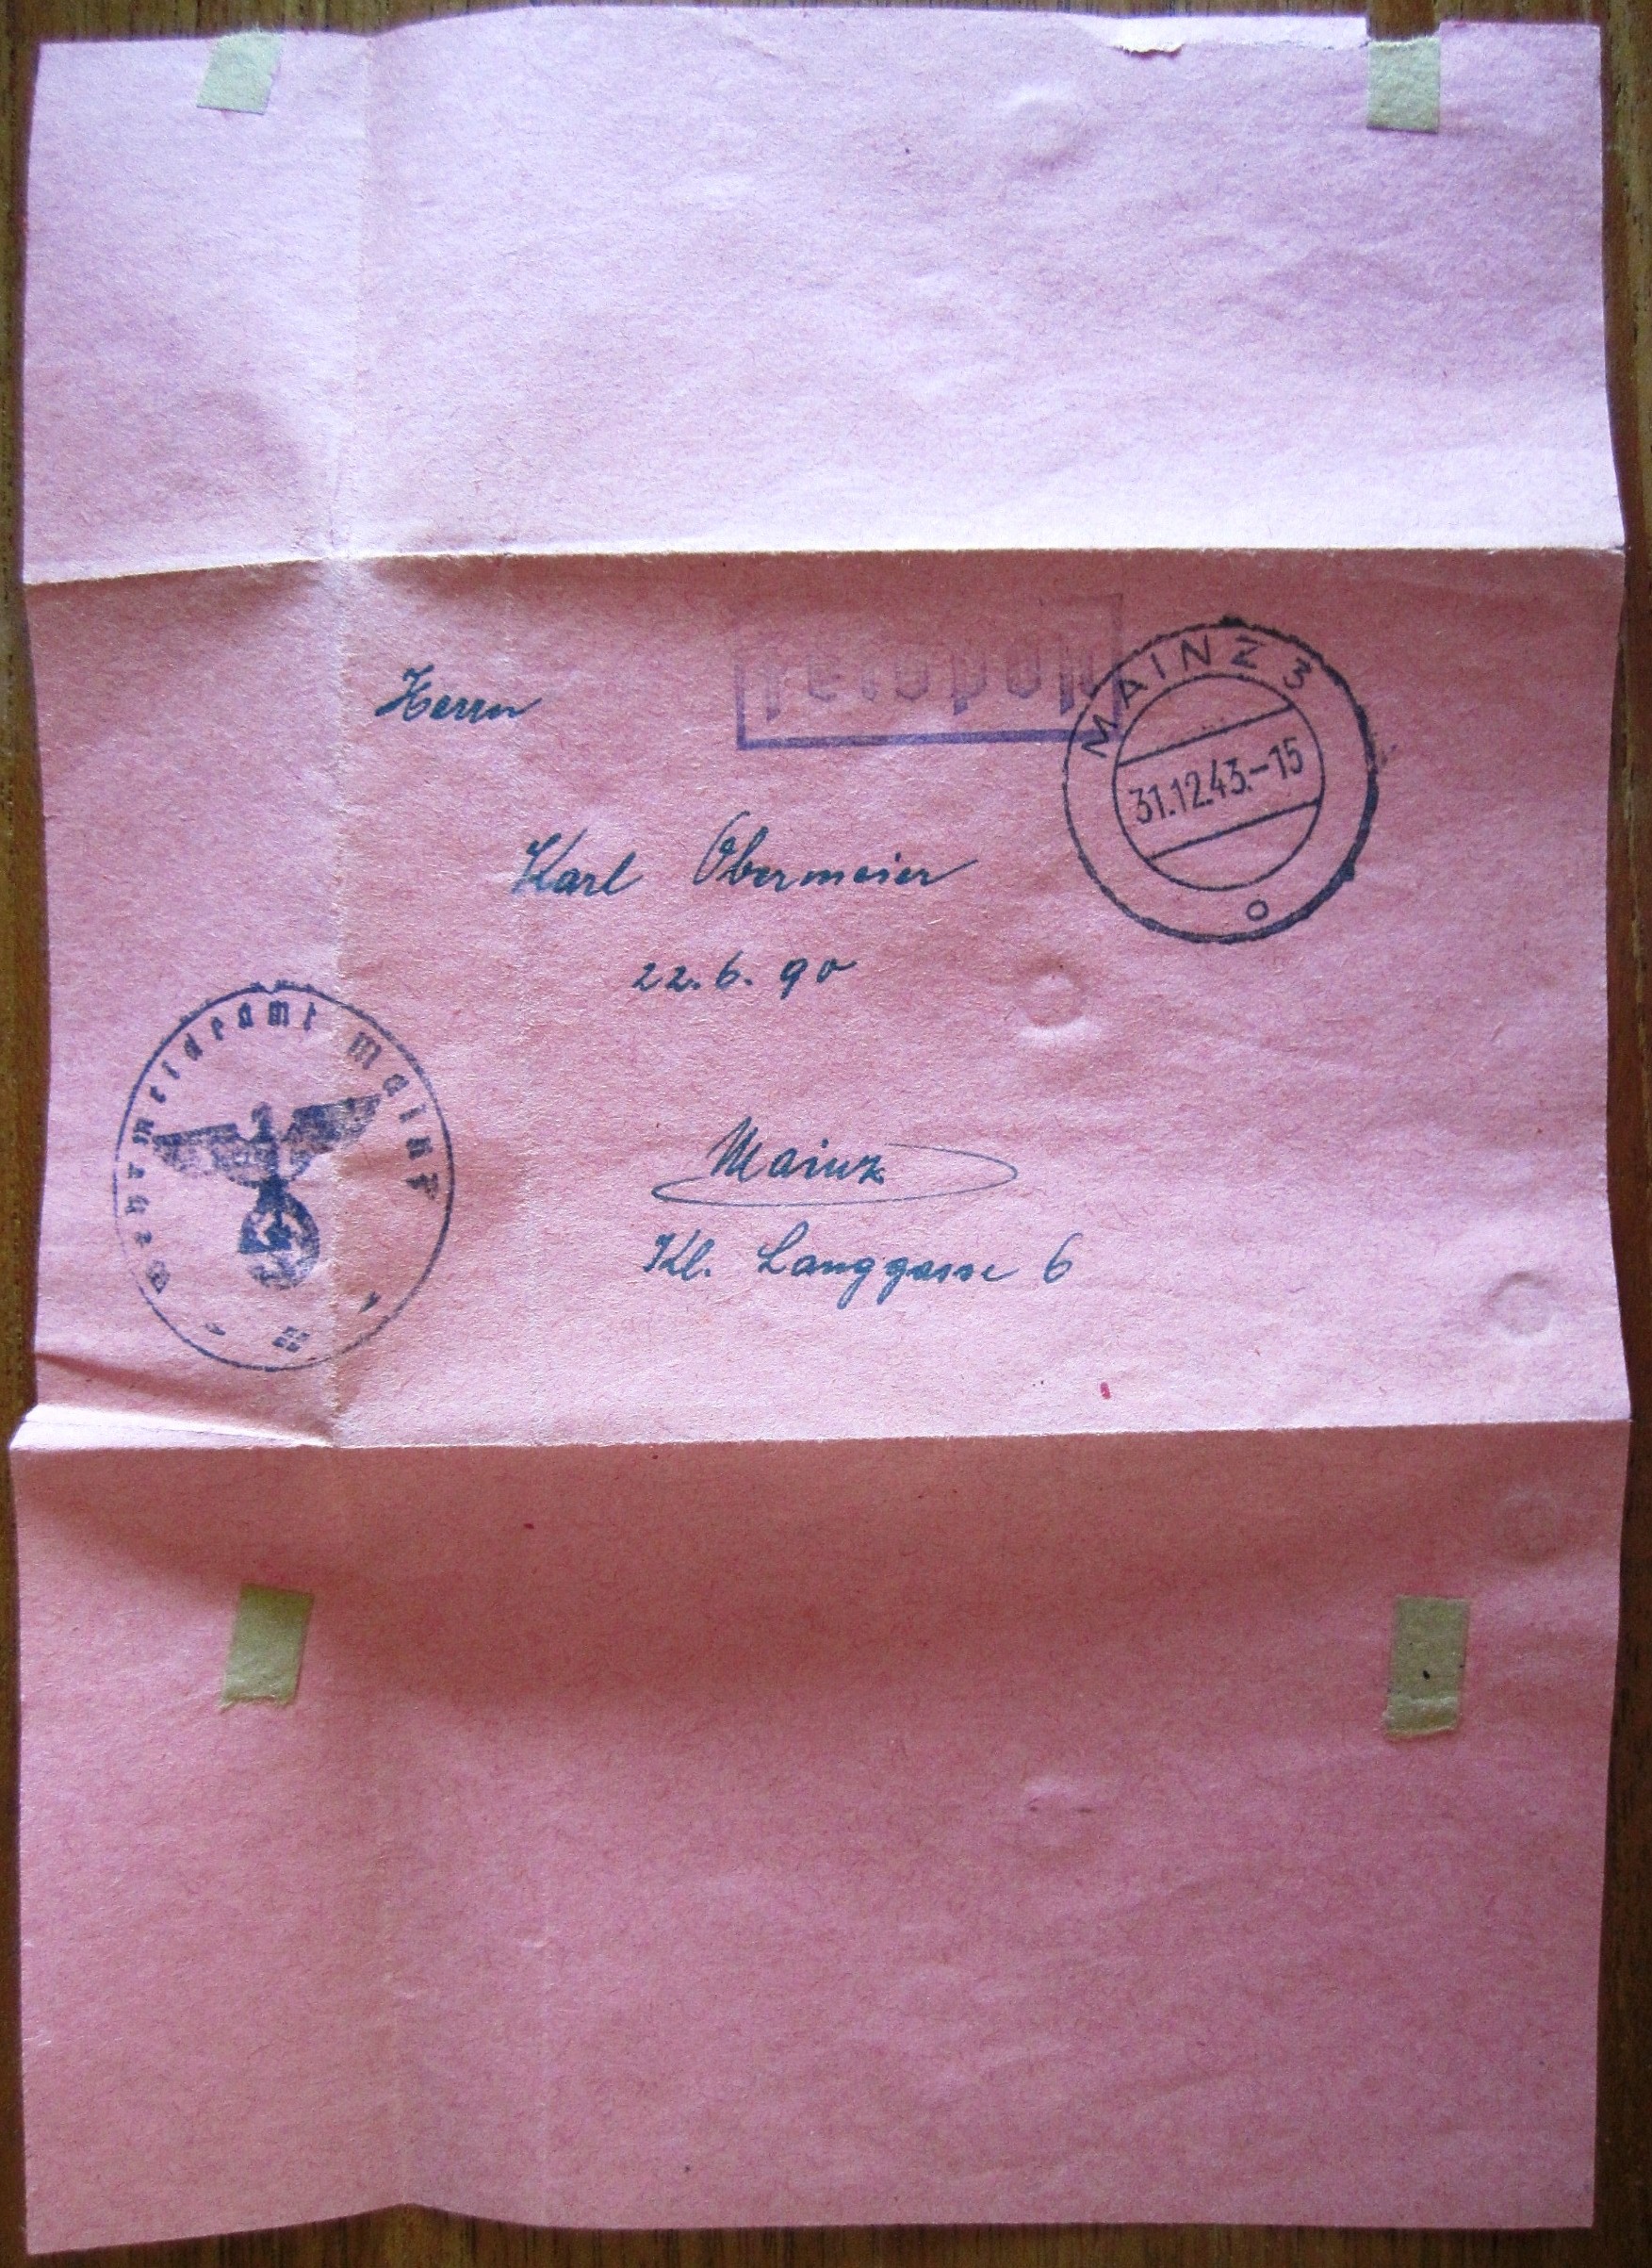 Feldpost
MAINZ 3
31.12.43.-15
o
Herrn
Karl Obermeier
22.6.90
Wehrmeldeamt Mainz
Mainz
Kl. Langgasse 6